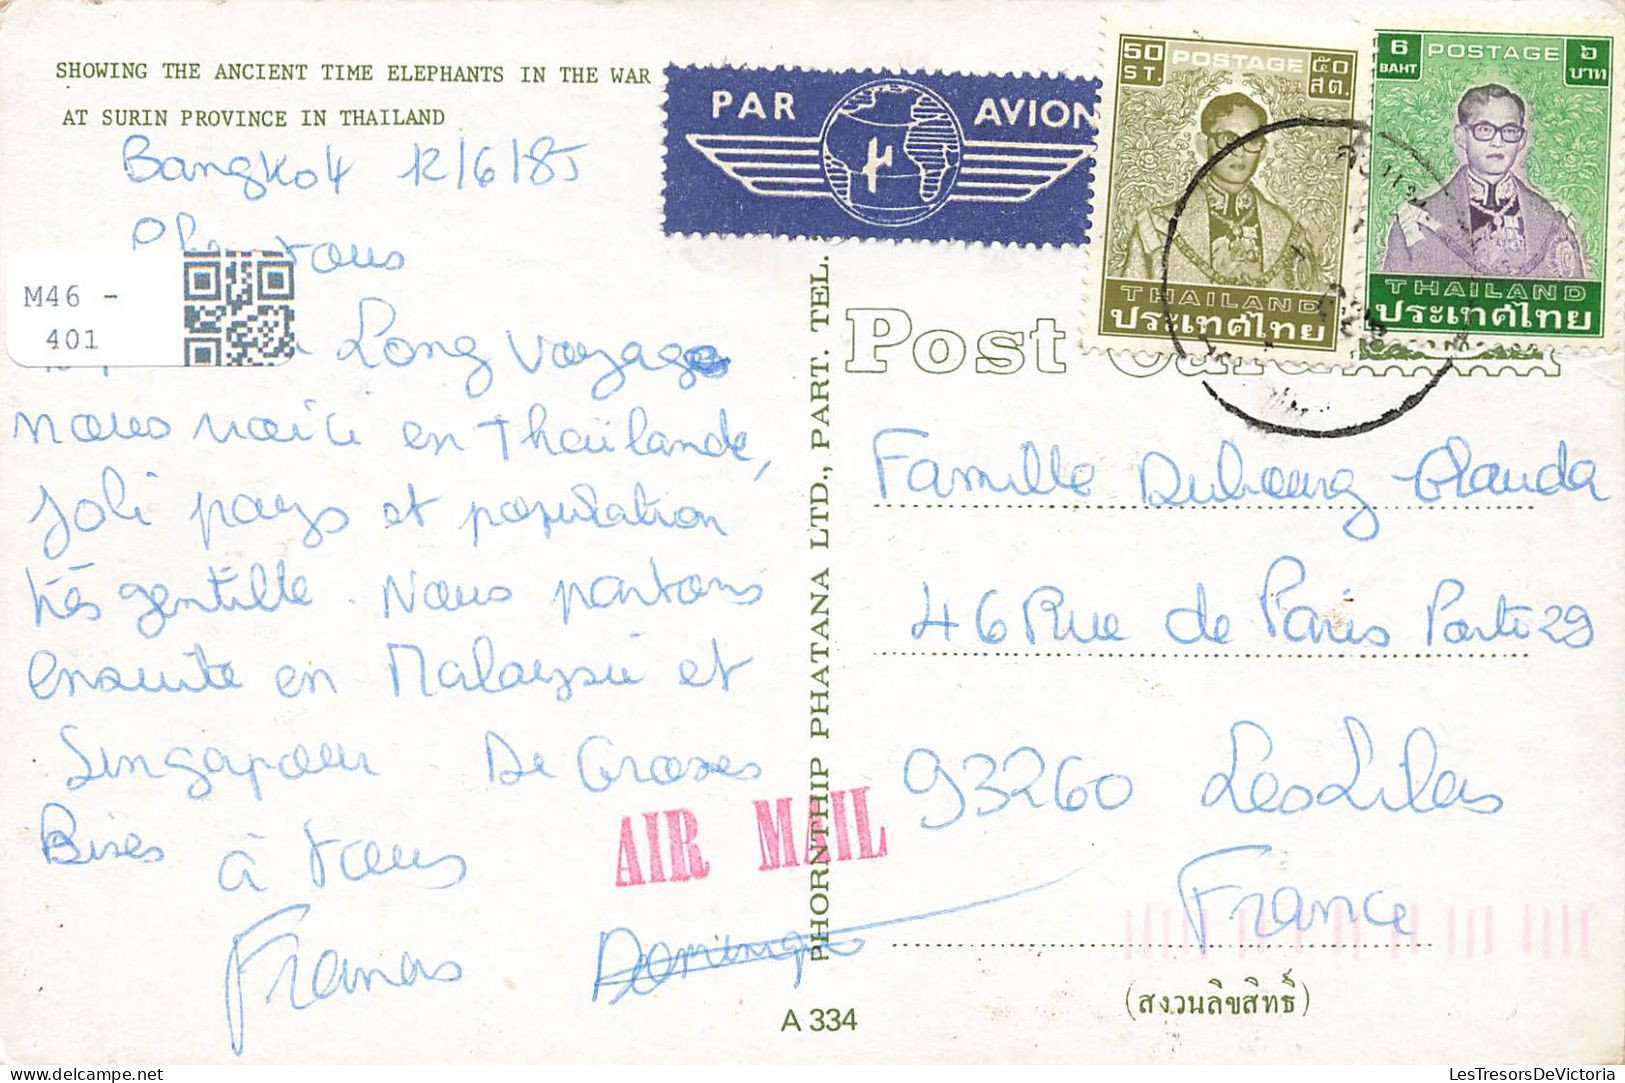 SHOWING THE ANCIENT TIME ELEPHANTS IN THE WAR
AT SURIN PROVINCE IN THAILAND
PAR AVION
50 ST. POSTAGE ๕๐ สต.
THAILAND
ประเทศไทย
6 BAHT POSTAGE ๖ บาท
THAILAND
ประเทศไทย
M46 -
401
Bangkok 12/6/85
tous
Long voyage
nous voici en Thaïlande,
Joli pays et population
très gentille. Nous partons
ensuite en Malaysie et
Singapour. De Grosses
Bises à tous
Francis Dominique
AIR MAIL
PHORNTHIP PHATANA LTD., PART. TEL.
Post Card
Famille Dubourg Clauda
46 Rue de Paris Porte 29
93260 Les Lilas
France
(สงวนลิขสิทธิ์)
A 334
LesTresorsDeVictoria